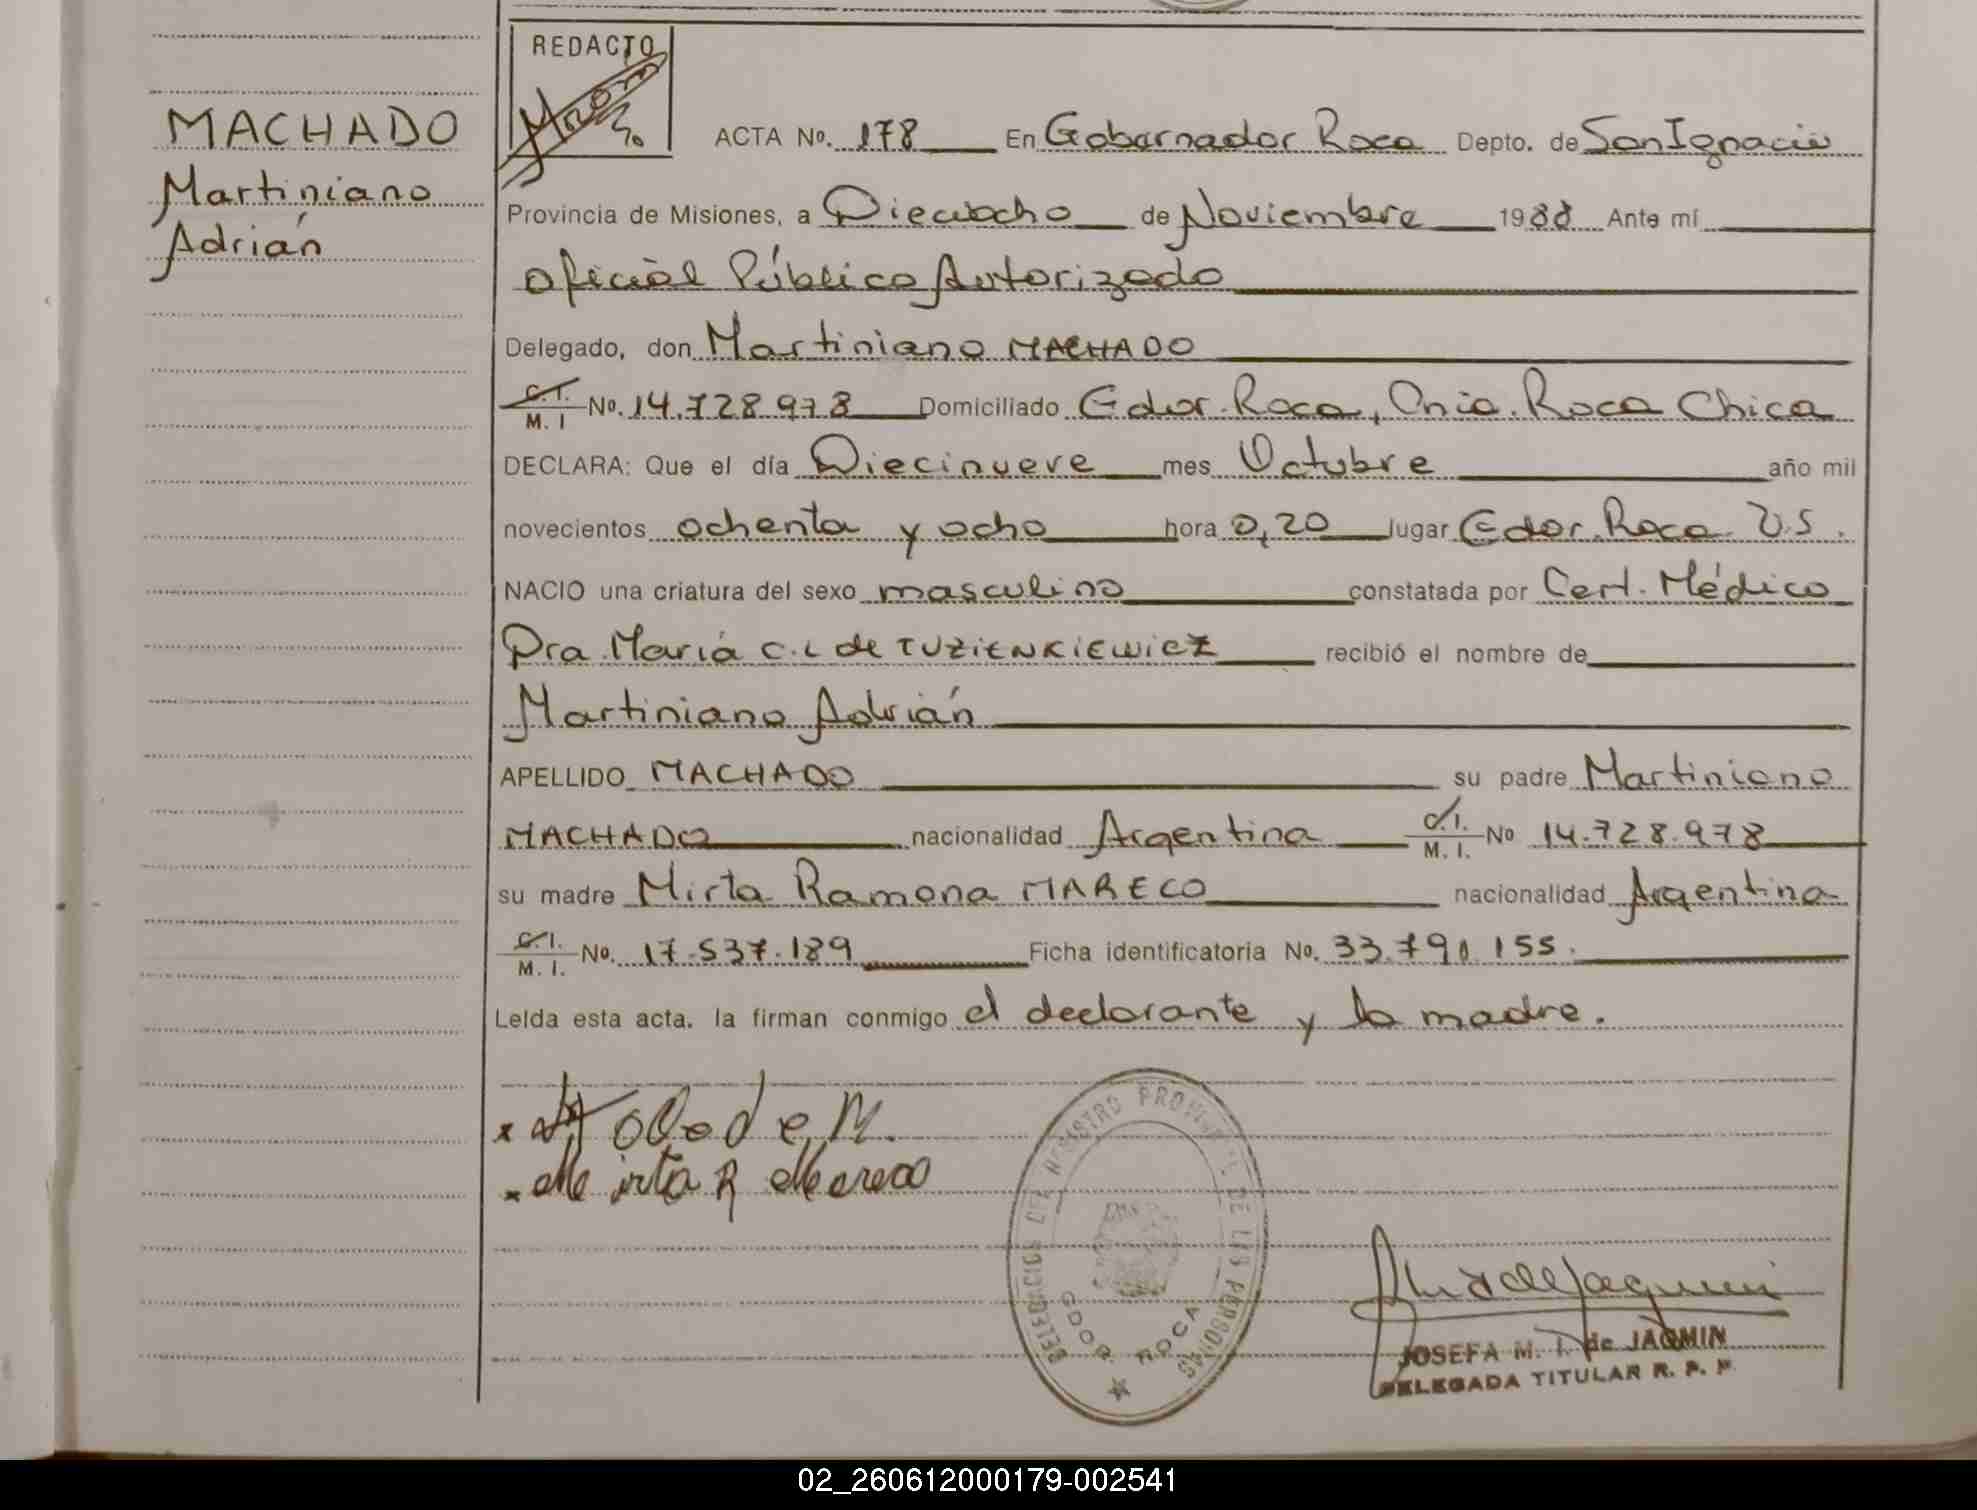 REDACTO
MACHADO
Martiniano
Adrián
ACTA Nº. 178 En Gobernador Roca Depto. de San Ignacio
Provincia de Misiones, a Dieciocho de Noviembre 1988 Ante mí
Oficial Público Autorizado
Delegado, don Martiniano MACHADO
C.I. M.I Nº. 14.728.978 Domiciliado Gdor. Roca, Cnia. Roca Chica
DECLARA: Que el día Diecinueve mes Octubre año mil
novecientos ochenta y ocho hora 0,20 lugar Gdor. Roca U.S.
NACIO una criatura del sexo masculino constatada por Cert. Médico
Dra. María C.L de TUZIENKIEWICZ recibió el nombre de
Martiniano Adrián
APELLIDO MACHADO su padre Martiniano
MACHADO nacionalidad Argentina C.I. M.I. Nº 14.728.978
su madre Mirta Ramona MARECO nacionalidad Argentina
C.I. M.I. Nº. 17.537.189 Ficha identificatoria Nº. 33.790.155.
Leída esta acta, la firman conmigo el declarante y la madre.
Mirta R Mareco
DELEGACION DEL REGISTRO PROVINCIAL DE LAS PERSONAS
GDOR. ROCA
JOSEFA M. T. de JAQMIN
DELEGADA TITULAR R. P. P
02_260612000179-002541